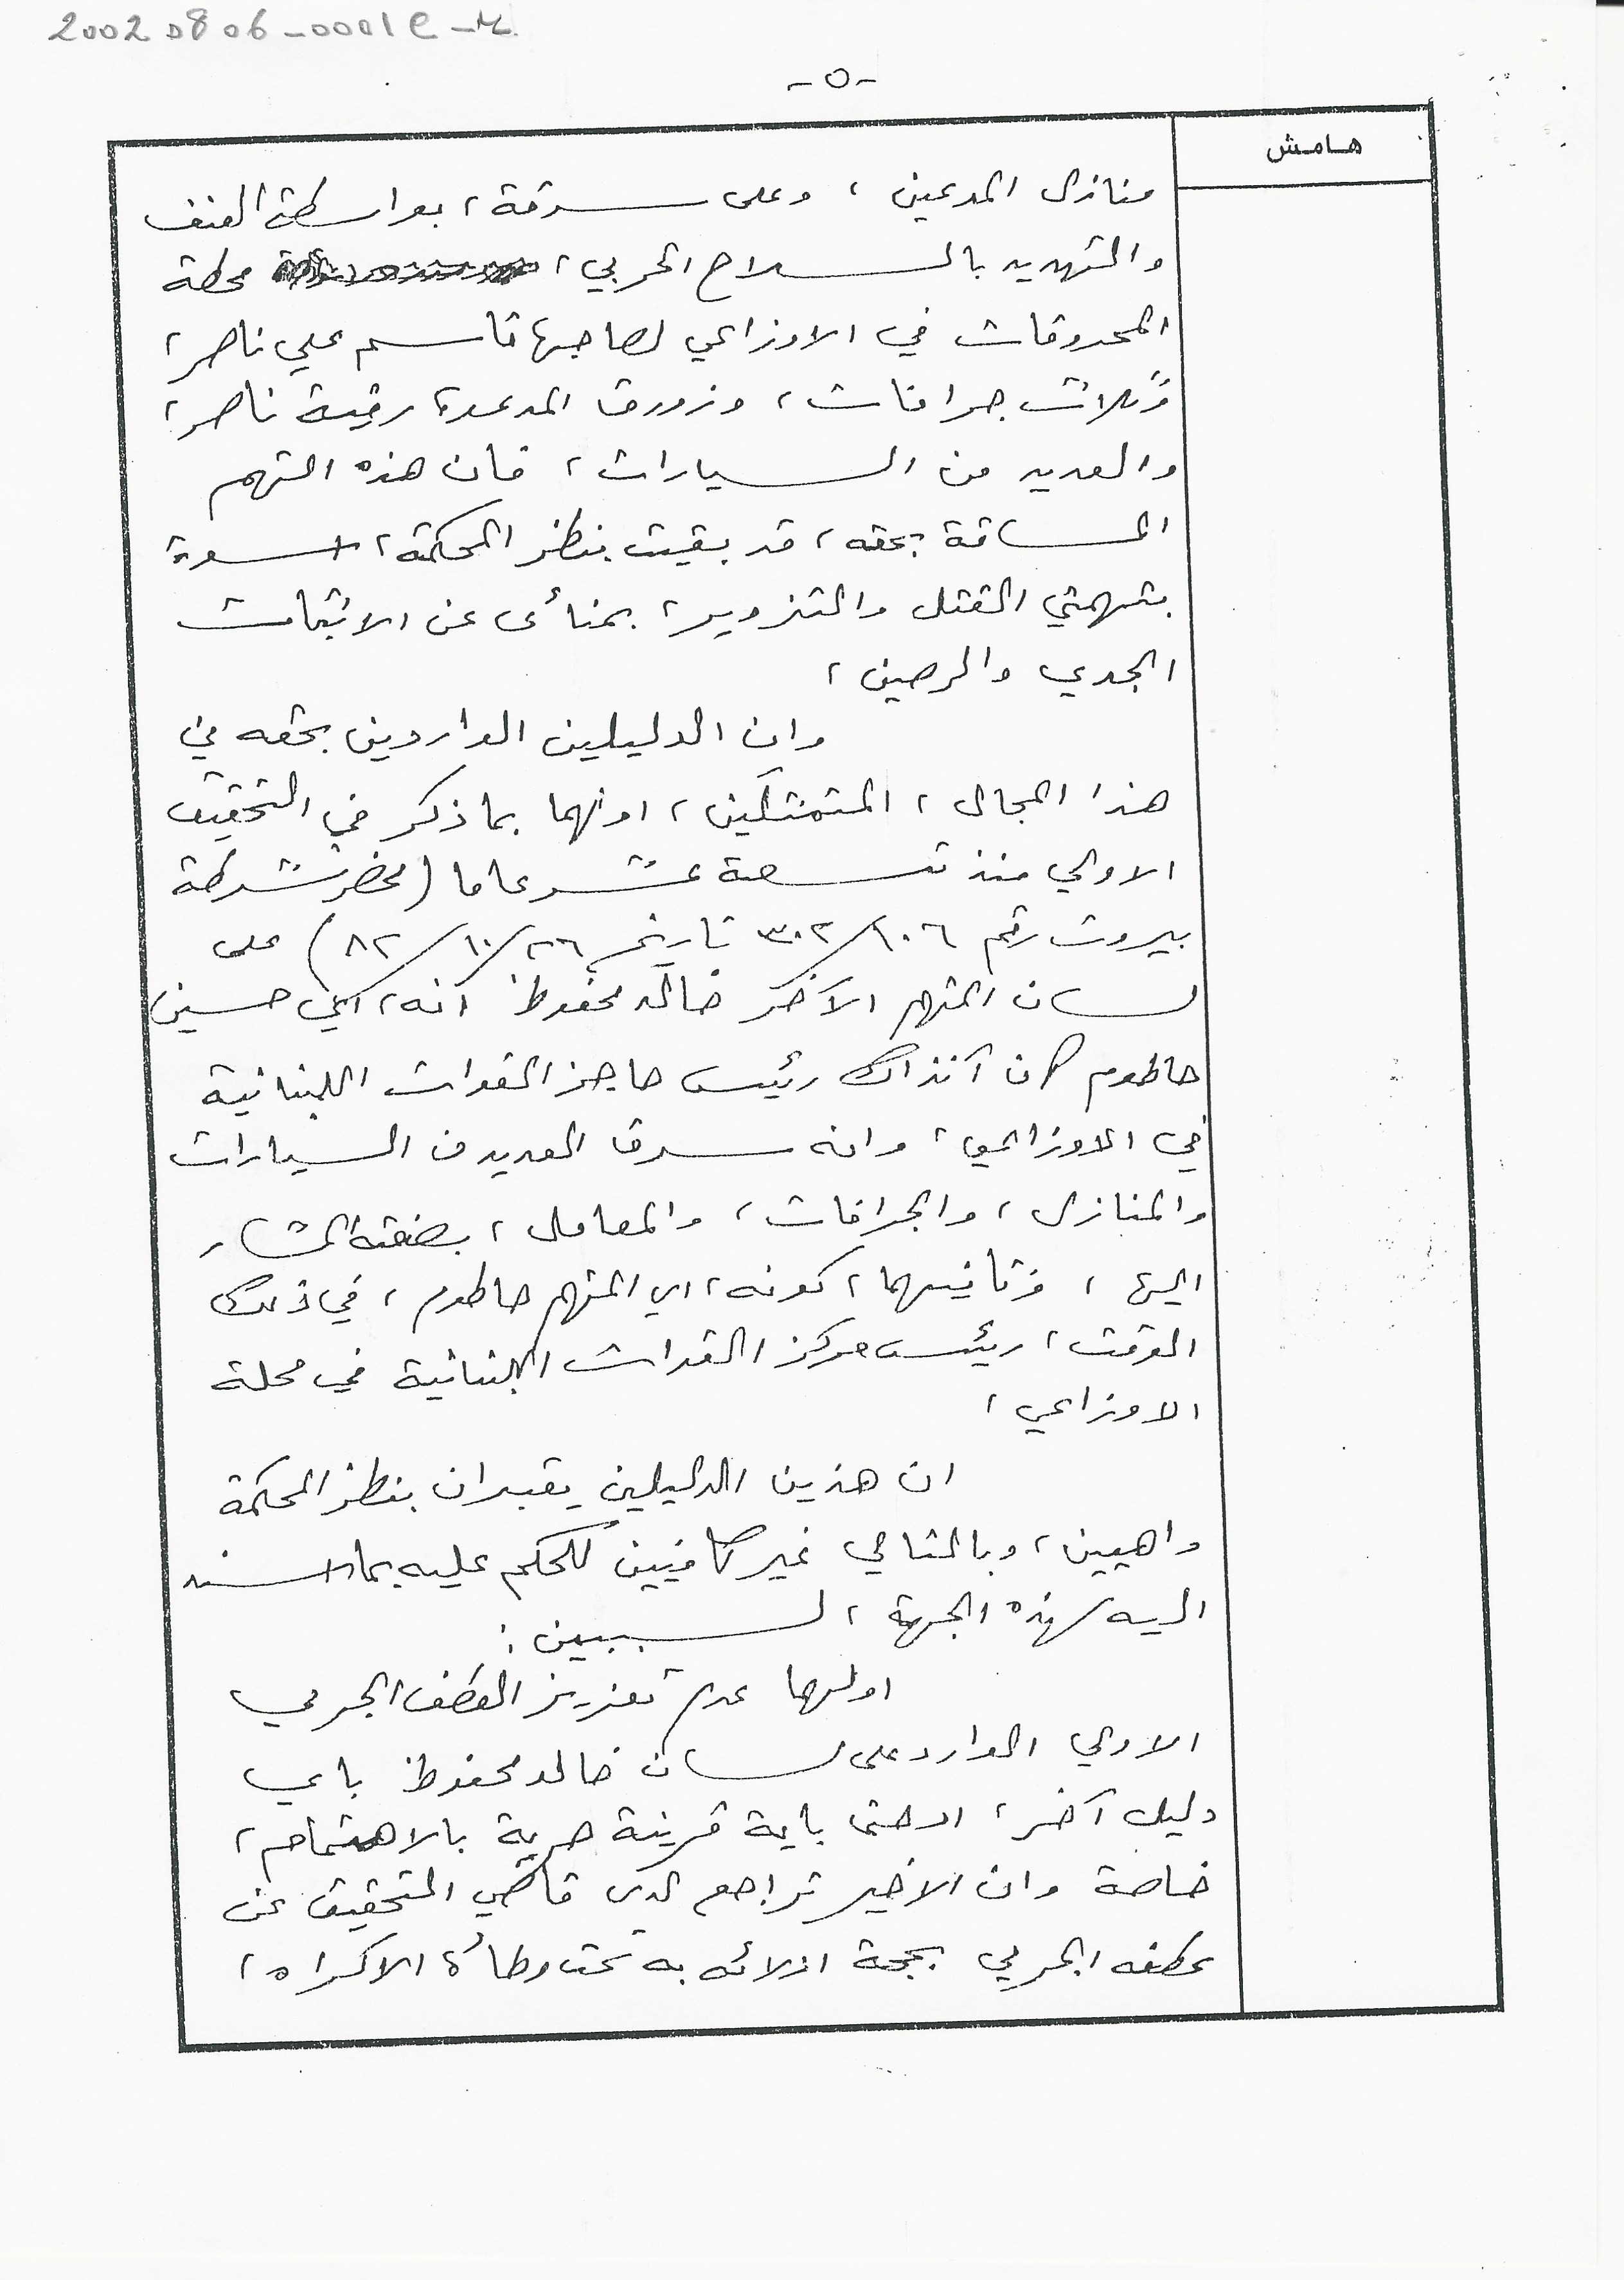 20020806-0001ع-م
-٥-
هامش
منازل المدعين ، وعلى سرقة ، بواسطة العنف
والتهديد بالسلاح الحربي ، محطة
المحروقات في الاوزاعي لصاحبها قاسم علي ناصر ،
وثلاث جرافات ، وزورق المدعوة رقية ناصر ،
والعديد من السيارات ، فان هذه التهم
المساقة بحقه ، قد بقيت بنظر المحكمة ، اسوة
بتهمتي القتل والتزوير ، بمنأى عن الاثبات
الجدي والرصين ،
وان الدليلين الواردين بحقه في
هذا المجال ، المتمثلين ، اولهما بما ذكر في التحقيق
الاولي منذ تسعة عشر عاما (محضر شرطة
بيروت رقم ٣٠٢/١٠٦ تاريخ ٢٦/١٠/٨٢) على
لسان المتهم الآخر خالد محفوظ انه ، اي حسين
حاطوم كان آنذاك رئيس حاجز القوات اللبنانية
في الاوزاعي ، وانه سرق العديد من السيارات
والمنازل ، والجرافات ، والمعامل ، بصفته المشار
اليها ، وثانيهما ، كونه ، اي المتهم حاطوم ، في ذلك
الوقت ، رئيس مركز القوات اللبنانية في محلة
الاوزاعي ،
ان هذين الدليلين يعتبران بنظر المحكمة
واهيين ، وبالتالي غير كافيين للحكم عليه بما اسند
اليه لهذه الجهة ، لسببين :
اولهما عدم تعزيز العطف الجرمي
الاولي الوارد على لسان خالد محفوظ باي
دليل آخر ، او حتى باية قرينة حرية بالاهتمام ،
خاصة وان الاخير تراجع لدى قاضي التحقيق عن
عطفه الجرمي بحجة ادلائه به تحت وطأة الاكراه ،